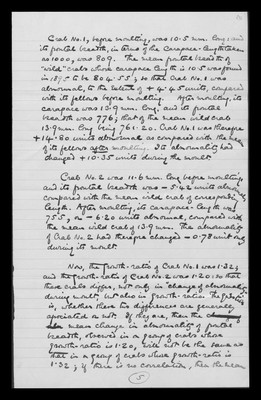 Crab No. 1, before moulting, was 10.5 mm. long; and
its frontal breadth, in terms of the Carapace-length taken
as 1000, was 809. The mean frontal breadth of
"wild" crabs whose carapace length is 10.5 was found
in 1895 to be 804.55; so that Crab No. 1 was
abnormal, to the extent of + 4.45 units, compared
with its fellows before moulting. After moulting, its
carapace was 13.9 mm. long, and its frontal
breadth was 776; that of the mean wild crab
13.9 mm. long being 761.20. Crab No. 1 was therefore
+ 14.80 units abnormal as compared with the mean
of its fellows after moulting. Its abnormality had
changed + 10.35 units during the moult.
Crab No. 2 was 11.6 mm. long before moulting,
and its frontal breadth was - 5.42 units
compared with the mean wild crab of corresponding
length. After moulting, its carapace-length was
755, or - 6.20 units abnormal, compared with
the mean wild crab of 13.9 mm. The abnormality
of Crab No. 2 had therefore changed - 0.78 unit only
during its moult.
Now, the growth-ratio of Crab No. 1 was 1.32;
and the growth-ratio of Crab No. 2 was 1.20: so that
these crabs differ, not only in change of abnormality
during moult, but also in growth-ratio. The
is, whether these two differences are generally
associated or not. If they are, then the
mean change in abnormality of frontal
breadth, observed in a group of crabs whose
growth-ratio is 1.20, will not be the same as
that in a group of crabs whose growth-ratio is
1.32; if there is no correlation, then the mean
5